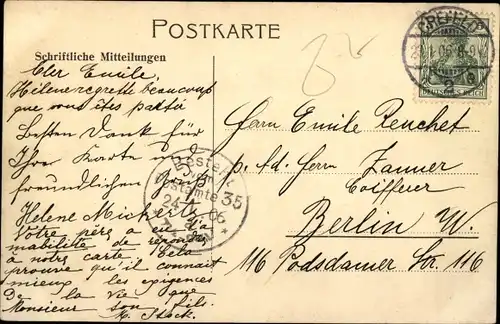 POSTKARTE
Schriftliche Mitteilungen
Cher Emile,
Hélène regrette beaucoup
que vous êtes parti
Besten Dank für
Ihre Karte und
freundlichen Gruß
Helene
Votre père a eu l'a
mabilité de répondre
à notre carte. Cela
prouve qu'il connait
mieux les exigences
De la vie que
Monsieur son fils.
M. Stock.
CREFELD
DEUTSCHES REICH
Bestellt
vom
Postamte 35
24
06
Herrn Emile Peuchet
p. Ad. Herrn Zanner
Coiffeur
Berlin W.
116 Potsdamer Str. 116